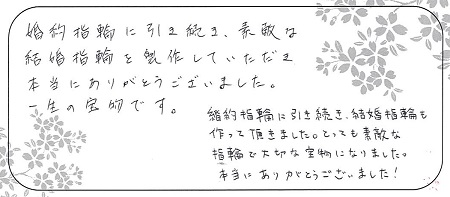 婚約指輪に引き続き、素敵な
結婚指輪を製作していただき
本当にありがとうございました。
一生の宝物です。
婚約指輪に引き続き、結婚指輪も
作って頂きました。とっても素敵な
指輪で大切な宝物になりました。
本当にありがとうございました!